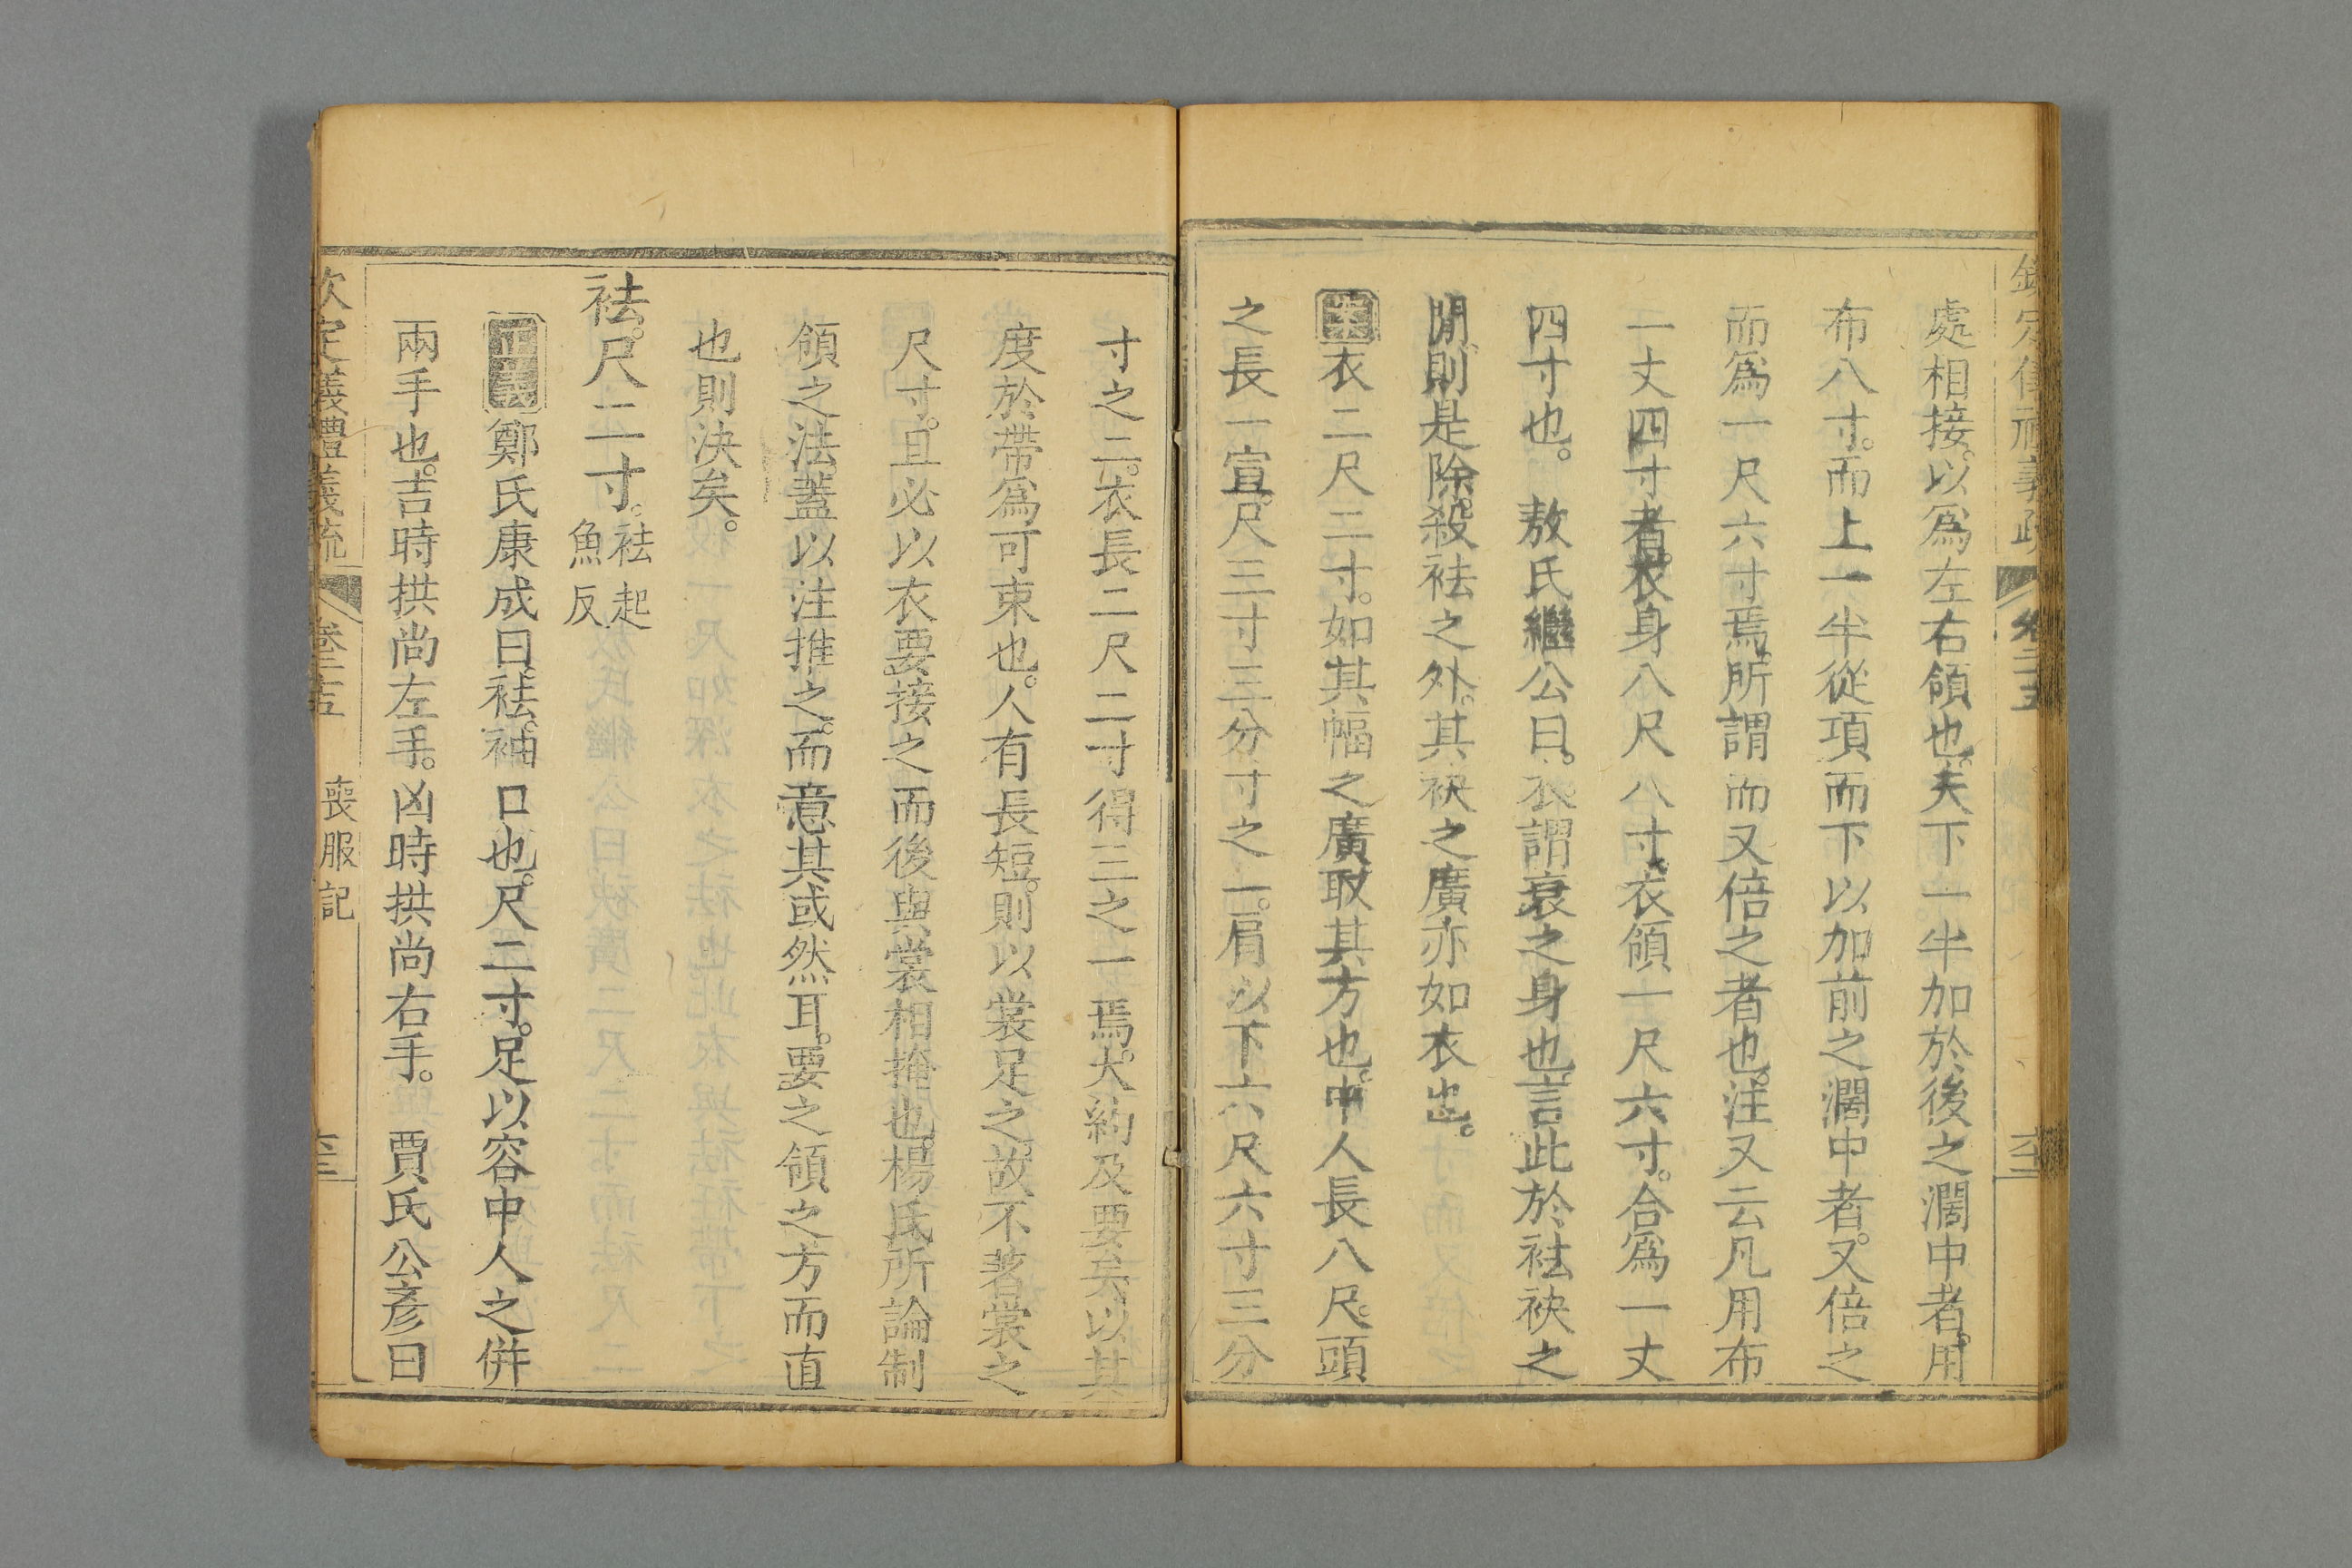 處相接。以爲左右領也。夫下一半加於後之濶中者。用
布八寸。而上一半從項而下以加前之濶中者。又倍之
而爲一尺六寸焉。所謂而又倍之者也。注又云凡用布
一丈四寸者。衣身八尺八寸。衣領一尺六寸。合爲一丈
四寸也。 敖氏繼公曰。衣。謂衰之身也。言此於袪袂之
閒。則是除殺袪之外。其袂之廣亦如衣也。
案衣二尺二寸。如其幅之廣取其方也。中人長八尺。頭
之長一宣。尺三寸三分寸之一。肩以下六尺六寸三分
寸之二。衣長二尺二寸得三之一焉。大約及要矣以其
度於帶爲可束也。人有長短。則以裳足之。故不著裳之
尺寸。且必以衣要接之而後與裳相掩也。楊氏所論制
領之法。蓋以注推之。而意其或然耳。要之領之方而直
也則決矣。
袪。尺二寸。袪起
魚反
正義鄭氏康成曰。袪。袖口也。尺二寸。足以容中人之併
兩手也。吉時拱尚左手。凶時拱尚右手。 賈氏公彥曰
欽定儀禮義疏 卷二十五 喪服記